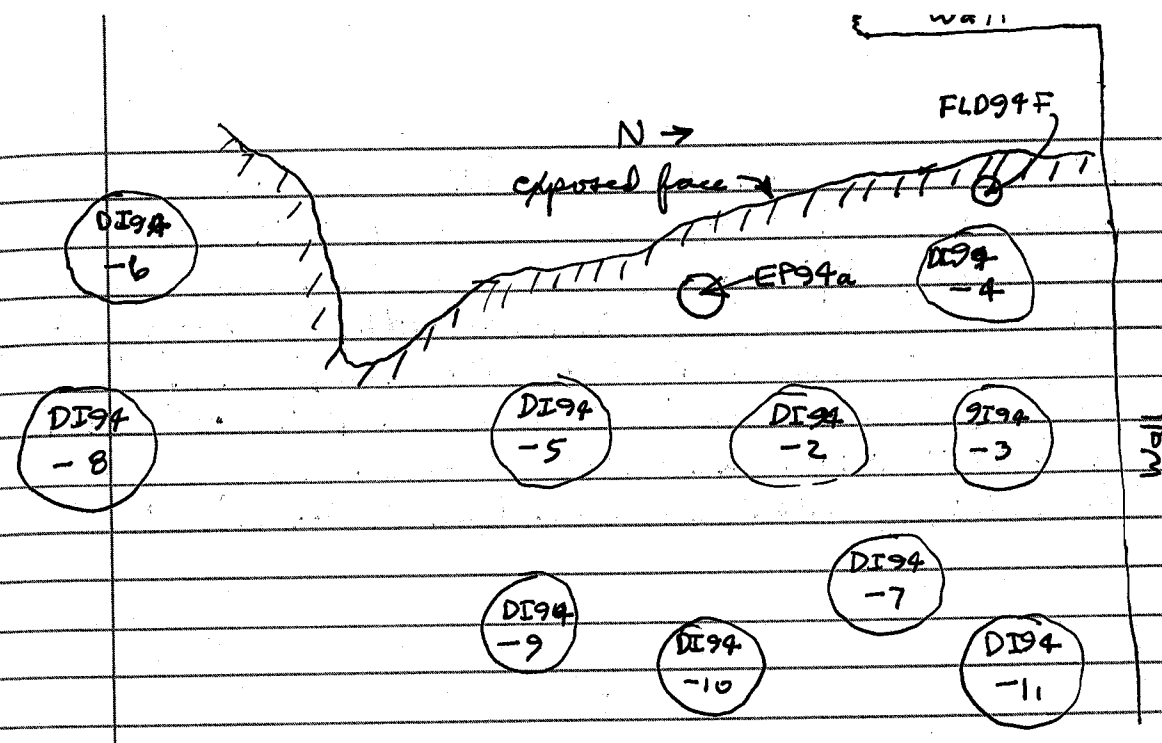 Wall
FLD94F
N →
exposed face
DI94
-6
DI94
-4
EP94a
DI94
-8
DI94
-5
DI94
-2
9I94
-3
Wall
DI94
-7
DI94
-9
DI94
-10
DI94
-11